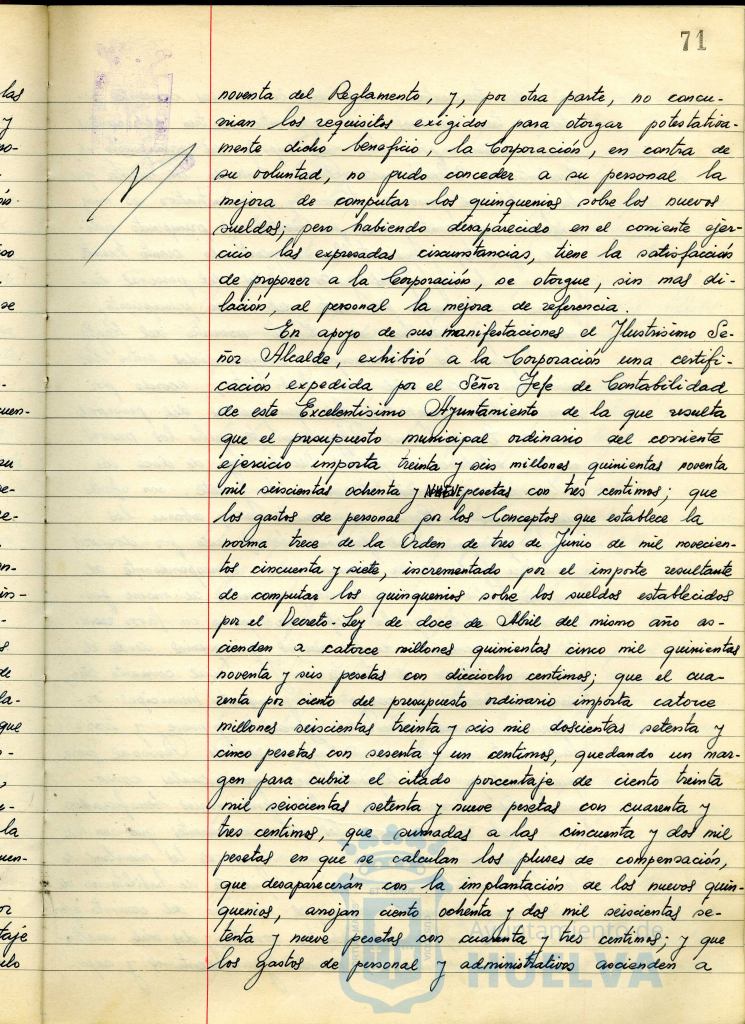 71
noventa del Reglamento, y, por otra parte, no concu-
rrian los requisitos exigidos para otorgar potestativa-
mente dicho beneficio, la Corporación, en contra de
su voluntad, no pudo conceder a su personal la
mejora de computar los quinquenios sobre los nuevos
sueldos; pero habiendo desaparecido en el corriente ejer-
cicio las expresadas circunstancias, tiene la satisfacción
de proponer a la Corporación, se otorgue, sin mas di-
lación, al personal la mejora de referencia.
En apoyo de sus manifestaciones el Ilustrisimo Se-
ñor Alcalde, exhibió a la Corporación una certifi-
cación expedida por el Señor Jefe de Contabilidad
de este Excelentisimo Ayuntamiento de la que resulta
que el presupuesto municipal ordinario del corriente
ejercicio importa treinta y seis millones quinientas noventa
mil seiscientas ochenta y nueve pesetas con tres centimos; que
los gastos de personal por los Conceptos que establece la
norma trece de la Orden de tres de Junio de mil novecien-
tos cincuenta y siete, incrementado por el importe resultante
de computar los quinquenios sobre los sueldos establecidos
por el Decreto-Ley de doce de Abril del mismo año as-
cienden a catorce millones quinientas cinco mil quinientas
noventa y seis pesetas con dieciocho centimos; que el cua-
renta por ciento del presupuesto ordinario importa catorce
millones seiscientas treinta y seis mil doscientas setenta y
cinco pesetas con sesenta y un centimos, quedando un mar-
gen para cubrir el citado porcentaje de ciento treinta
mil seiscientas setenta y nueve pesetas con cuarenta y
tres centimos, que sumadas a las cincuenta y dos mil
pesetas en que se calculan los pluses de compensación,
que desaparecerán con la implantación de los nuevos quin-
quenios, arrojan ciento ochenta y dos mil seiscientas se-
tenta y nueve pesetas con cuarenta y tres centimos; y que
los gastos de personal y administrativos ascienden a
Ayuntamiento de
HUELVA